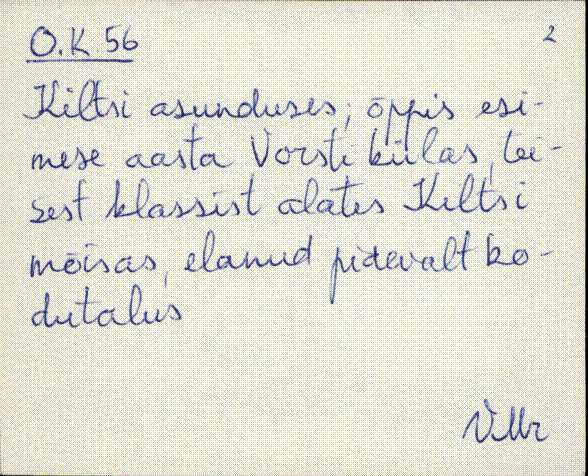 O.K 56 2
Kiltsi asunduses; õppis esi-
mese aasta Vorsti külas, tei-
sest klassist alates Kiltsi
mõisas, elanud pidevalt ko-
dutalus
VMr